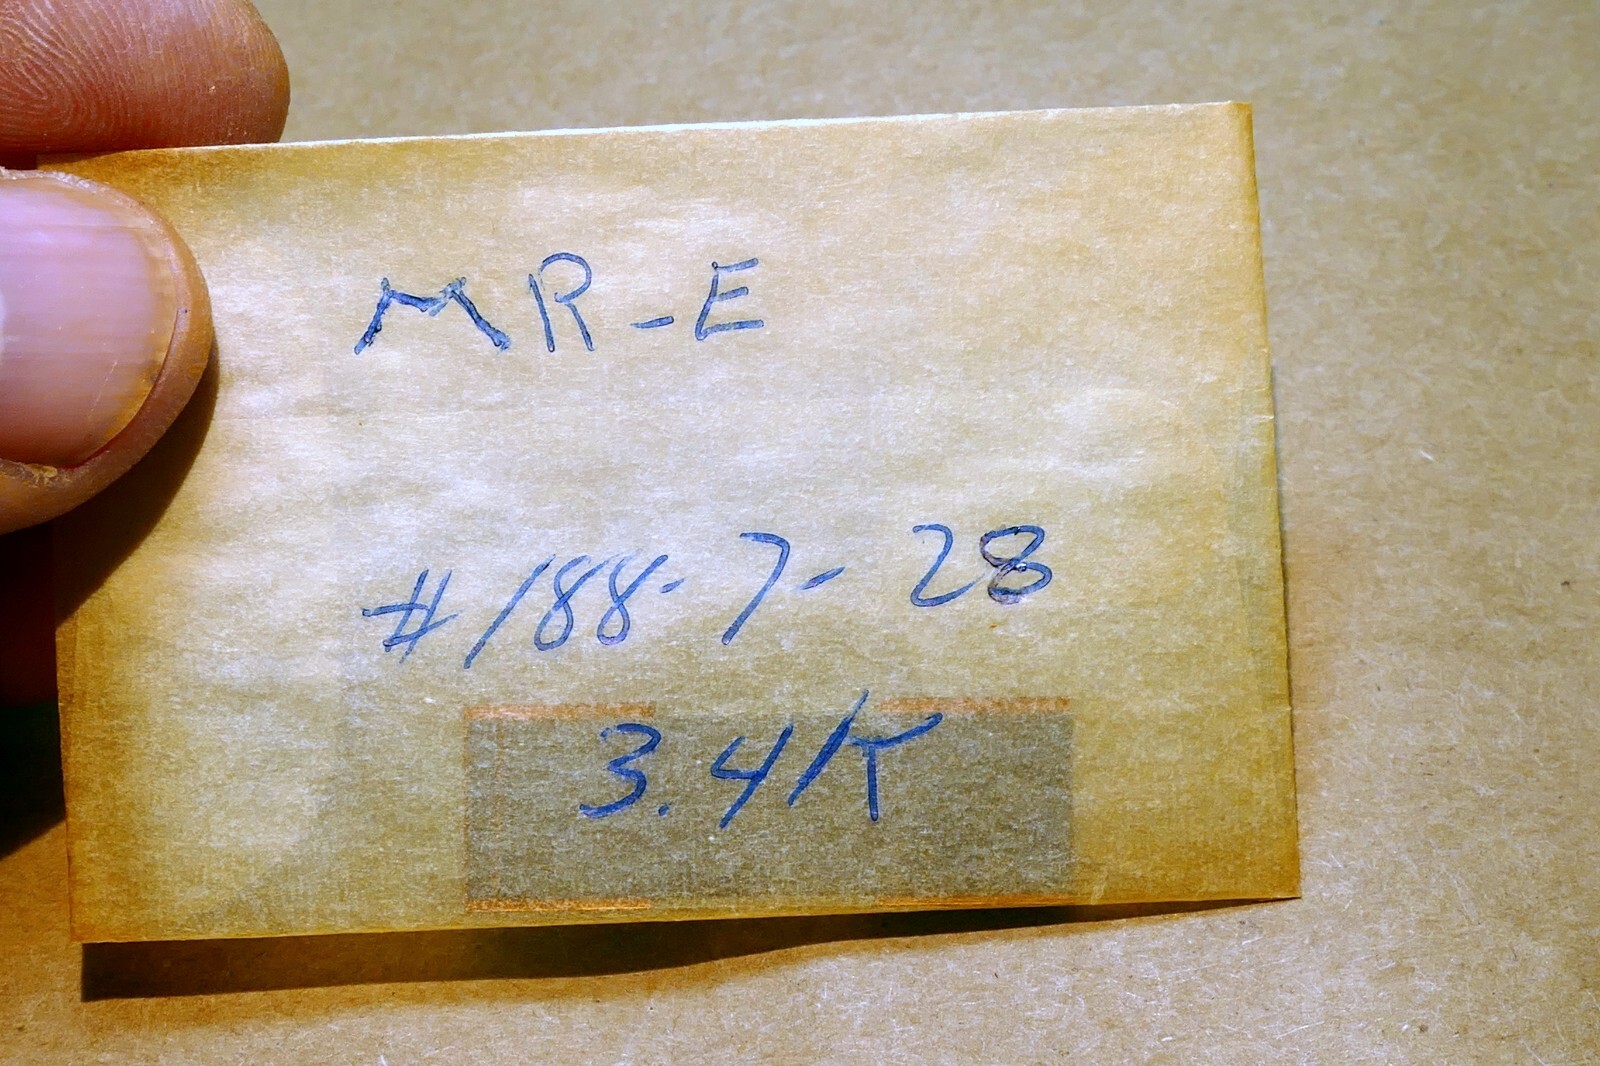 MR-E
#188-7-28
3.4K